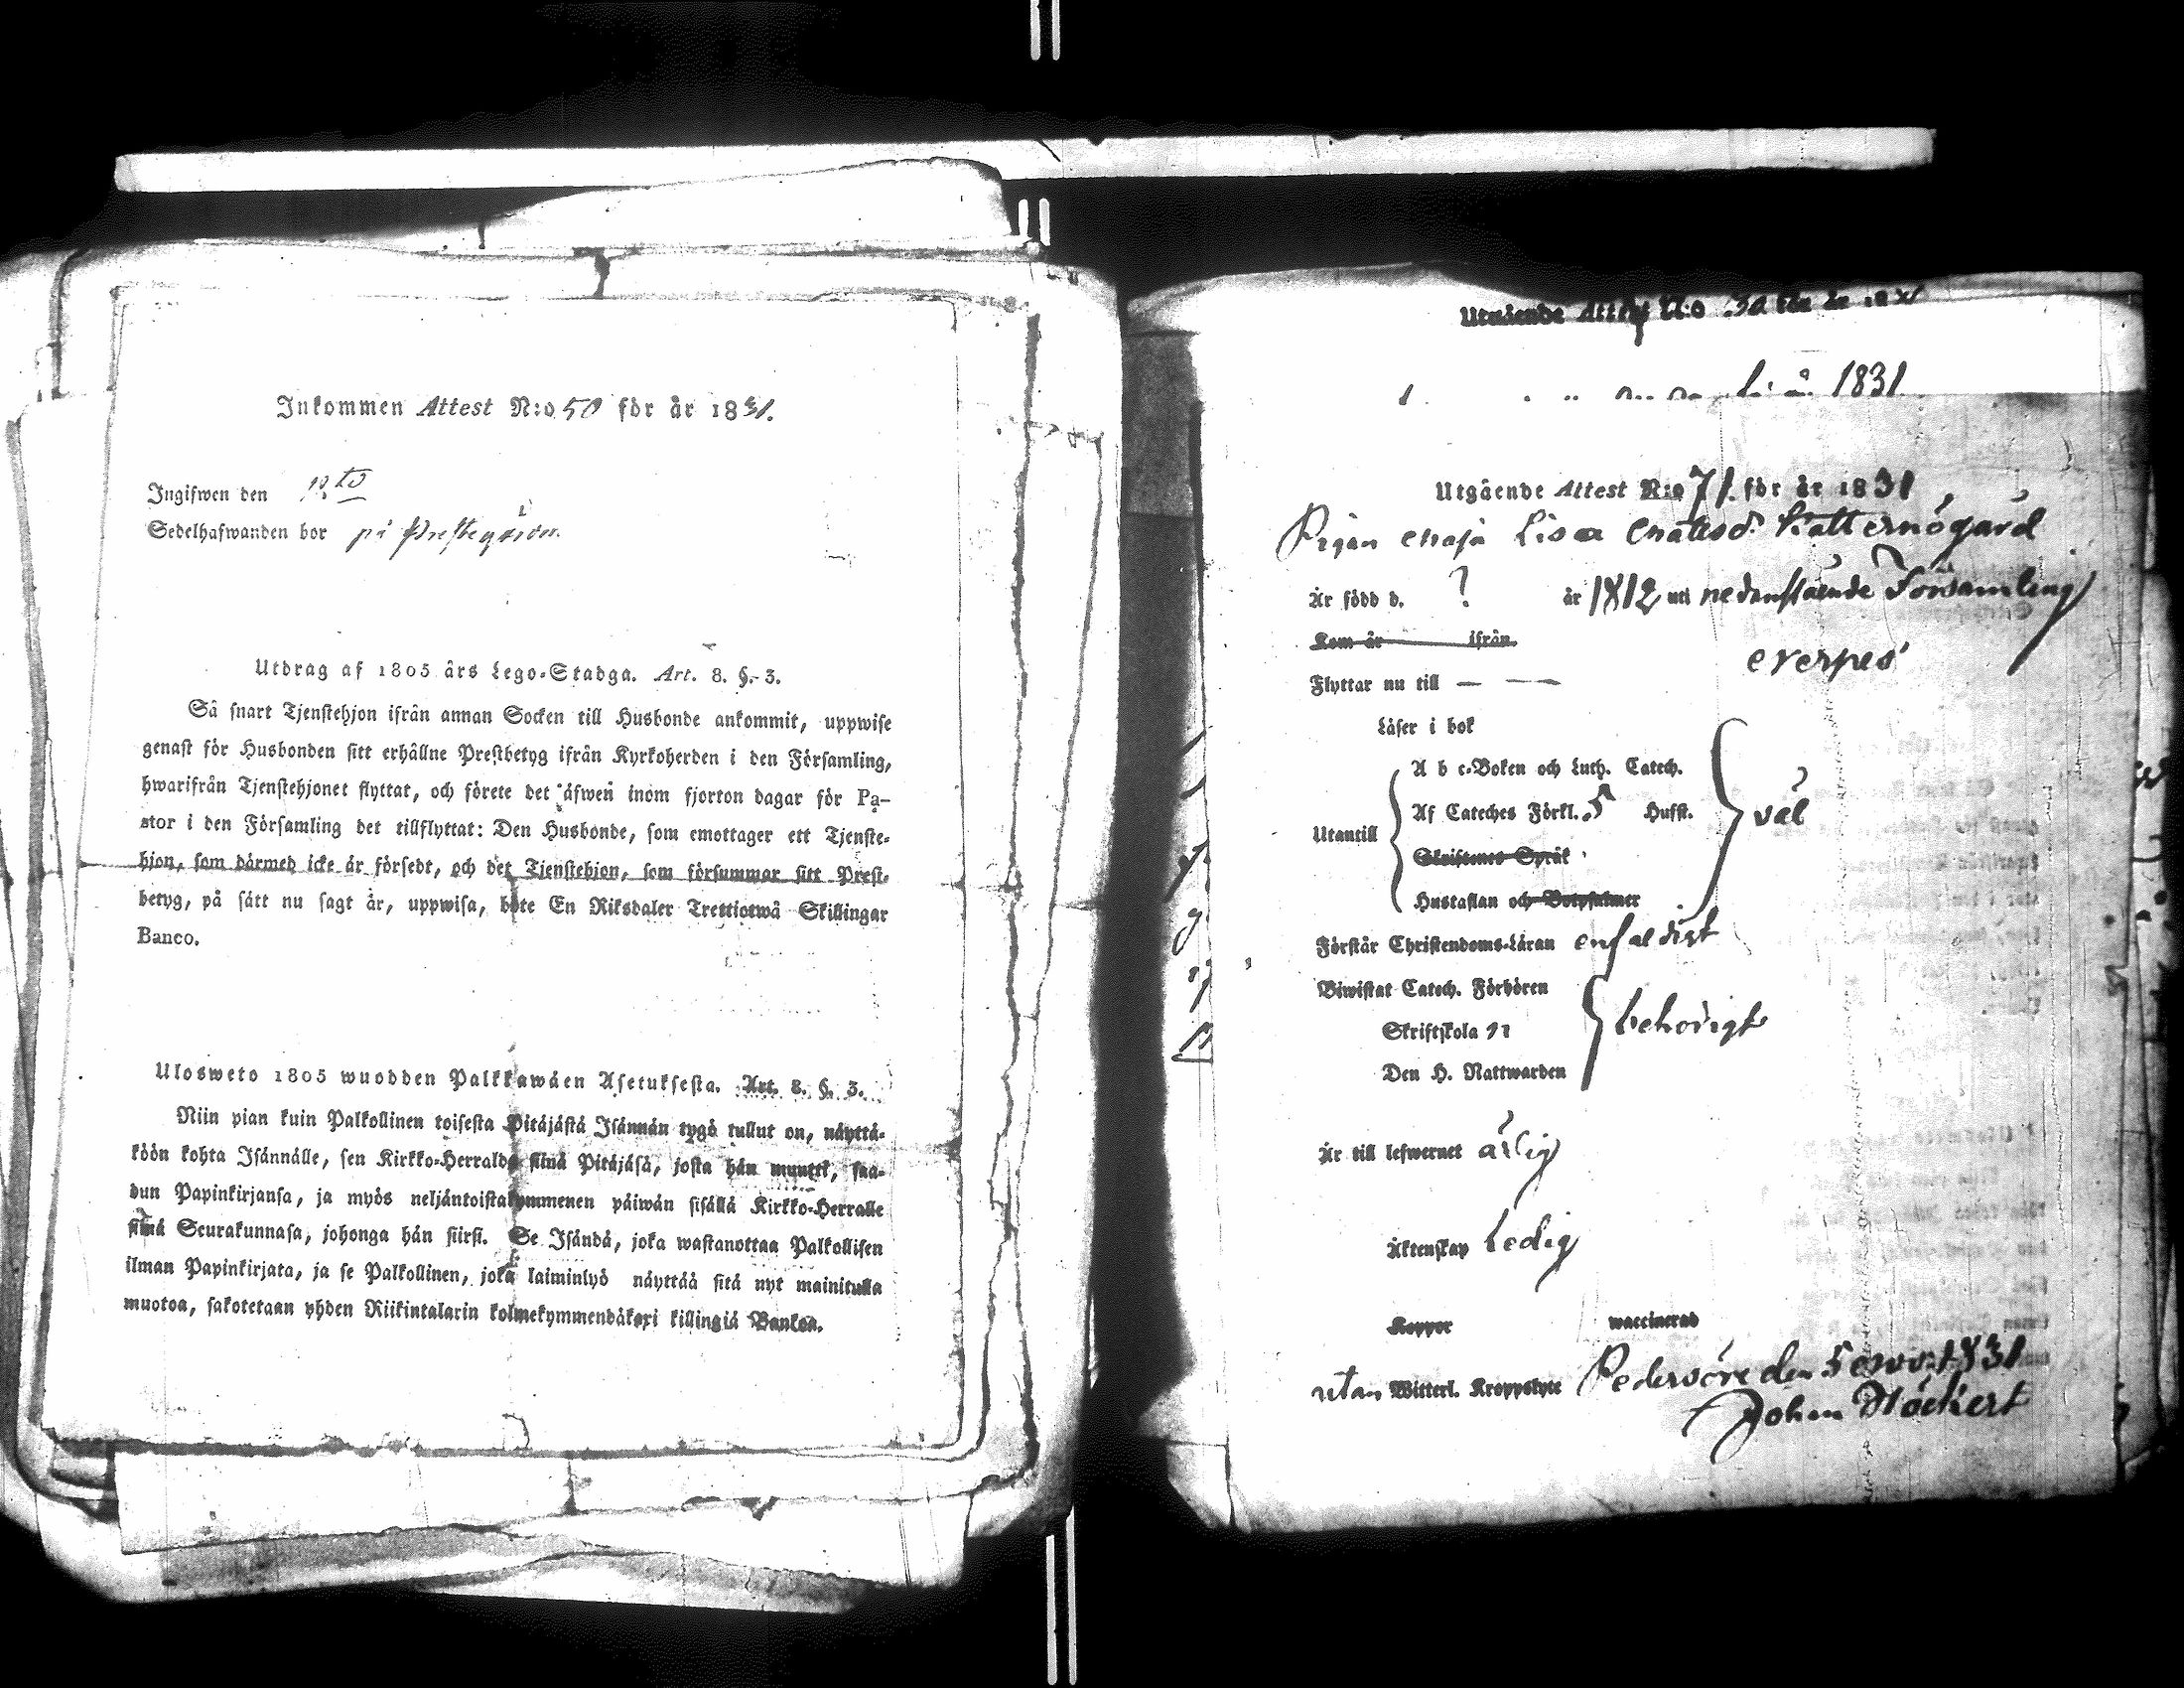 Inkommen Attest N:o 50 för år 1831.
Ingifwen den
Sedelhafwanden bor på Prestegården
Utdrag af 1805 års Lego-Stadga. Art. 8. §. 3.
Så snart Tjenstehjon ifrån annan Socken till Husbonde ankommit, uppwise
genast för Husbonden sitt erhållne Prestbetyg ifrån Kyrkoherden i den Församling,
hwarifrån Tjenstehjonet flyttat, och förete det äfwen inom fjorton dagar för Pa-
stor i den Församling det tillflyttat: Den Husbonde, som emottager ett Tjenste-
hjon, som dårmed icke år försedt, och det Tjenstehjon, som försummar sitt Prest-
betyg, på sått nu sagt år, uppwisa, böte En Riksdaler Trettiotwå Skillingar
Banco.
Ulosweto 1805 wuodden Palkkawåen Asetuksesta. Art. 8. §. 3.
Niin pian kuin Palkollinen toisesta Pitåjåstå Isånnån tygö tullut on, nåyttå-
köön kohta Isånnålle, sen Kirkko-Herralda siinå Pitåjåså, josta hån muutti, saa-
dun Papinkirjansa, ja myös neljåntoistakymmenen påiwån sisållå Kirkko-Herralle
siinå Seurakunnasa, johonga hån siirsi. Se Isåndå, joka wastanottaa Palkollisen
ilman Papinkirjata, ja se Palkollinen, joka laiminlyö nåyttåå sitå nyt mainitulla
muotoa, sakotetaan yhden Riikintalarin kolmekymmendåkaxi killingiå Bankoa.
Utgående Attest N:o 30 för år 18
1831
Utgående Attest N:o 71. för år 1831
Pigan Maja Lisa Matsd. Katternögård
Är född d. ? år 1812 uti nedanstående Församling
Kom år ifrån
Flyttar nu till — — Nerpes
Läser i bok
A b c-Boken och Luth. Catech.
Utantill Af Cateches Förkl. 5 Hufst. väl
Skriftenes Språk
Hustaflan och Botpsalmer
Förstår Christendoms-Läran enfaldigt
Biwistat Catech. Förhören
Skriftskola behörigt
Den H. Nattwarden
Är till lefwernet ärlig
Äktenskap Ledig
Koppor waccinerad
utan Witterl. Kroppslyte Pedersöre den 5 Nov: 1831
Johan Höckert